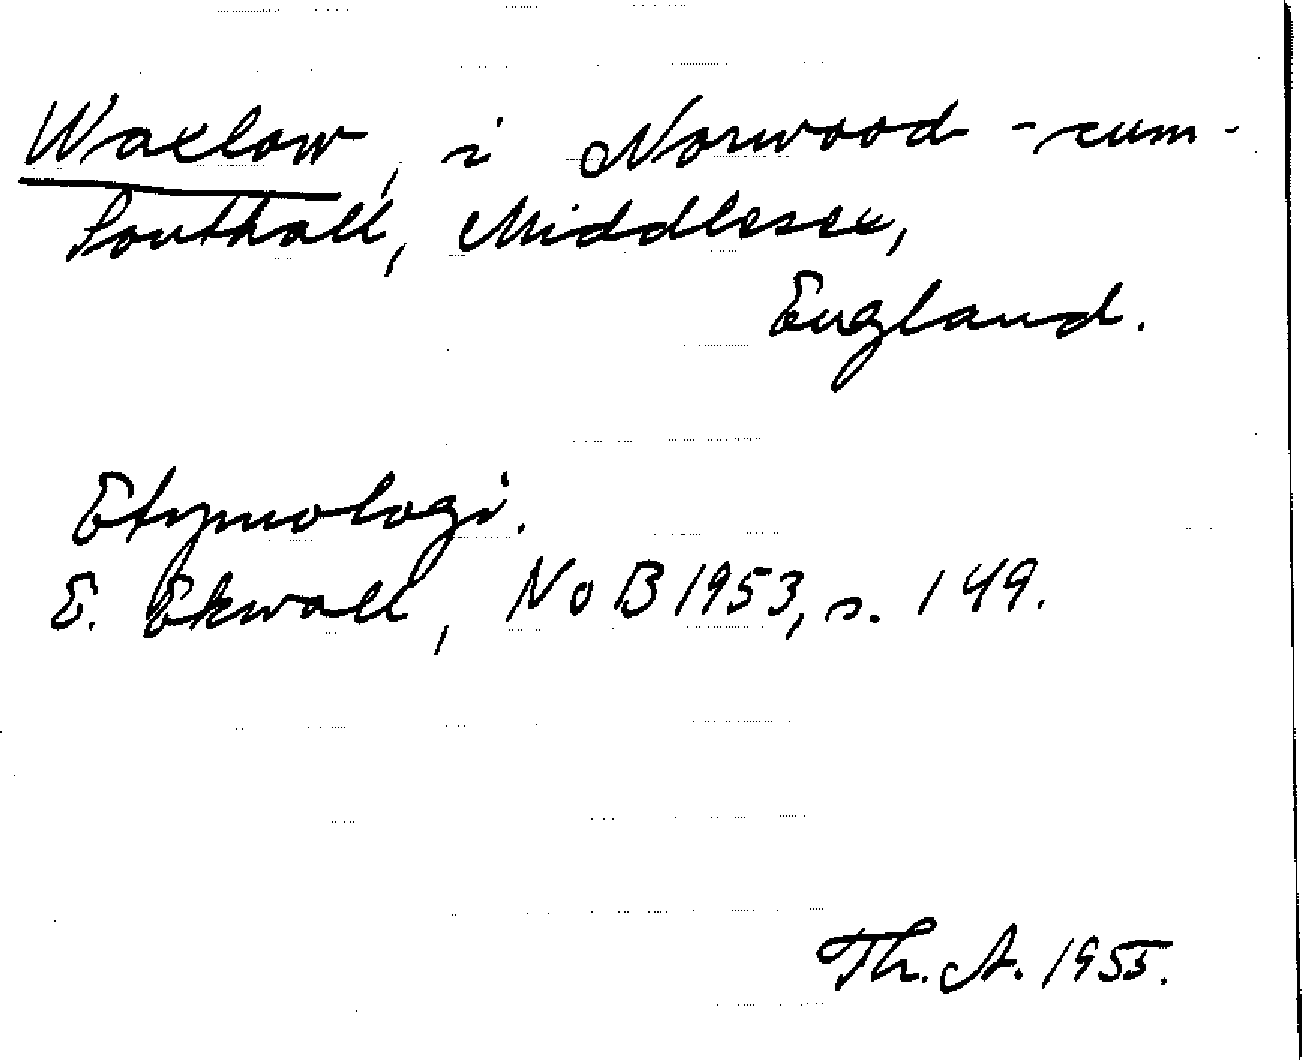 Waxlow, i Norwood-cum-
Southall, Middlesex,
England.
Etymologi.
E. Ekwall, NoB 1953, s. 149.
Th. A. 1955.